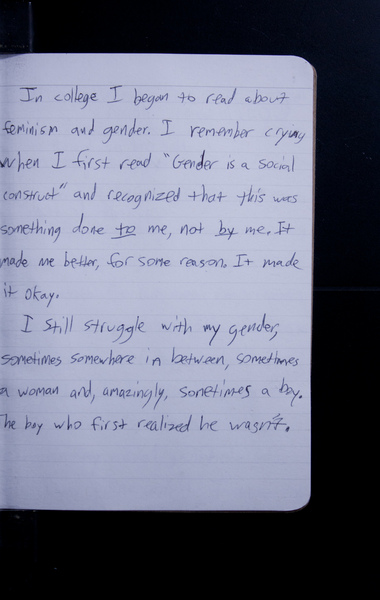 In college I began to read about
feminism and gender. I remember crying
when I first read "Gender is a social
construct" and recognized that this was
something done to me, not by me. It
made me better, for some reason. It made
it okay.
I still struggle with my gender,
sometimes somewhere in between, sometimes
a woman and, amazingly, sometimes a boy.
The boy who first realized he wasn't.